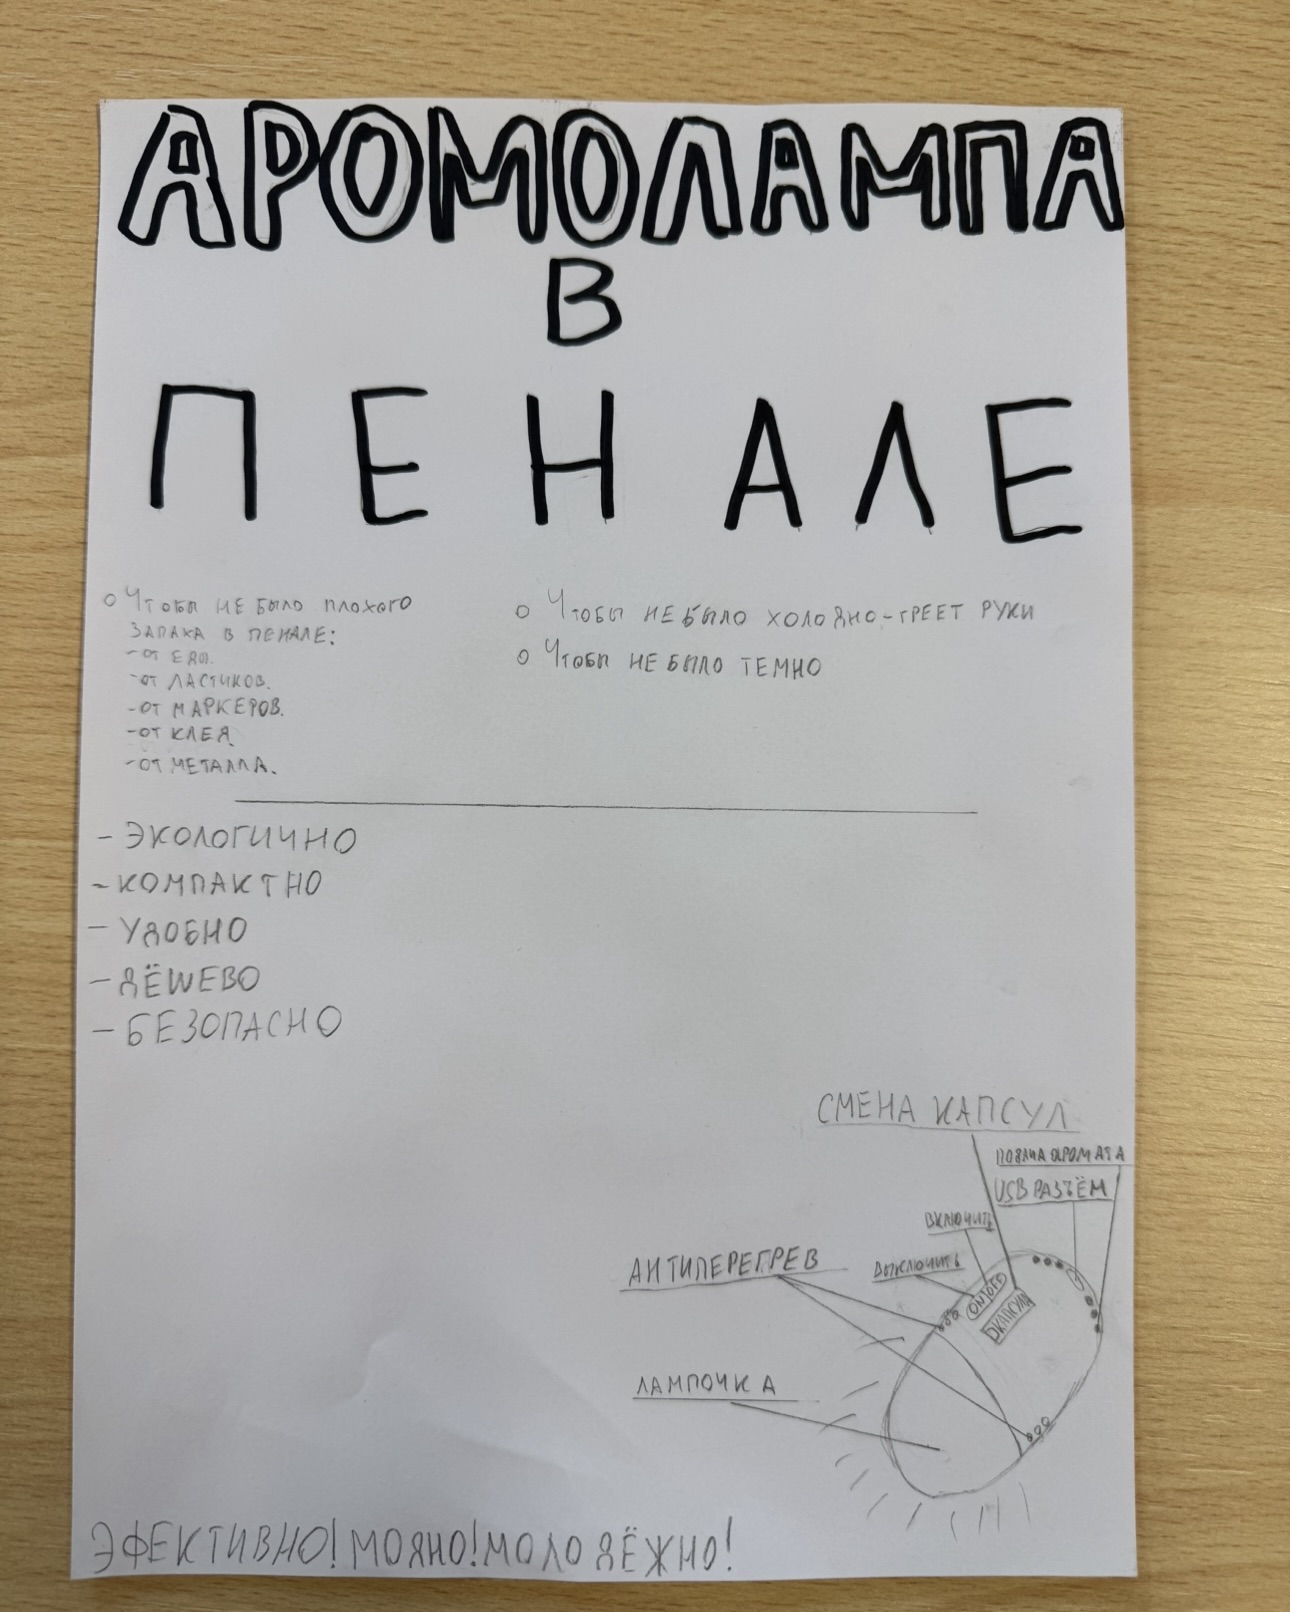 АРОМОЛАМПА
В
ПЕНАЛЕ
Чтобы не было плохого
запаха в пенале:
- от еды.
- от ластиков.
- от маркеров.
- от клея
- от металла.
Чтобы не было холодно - греет руки
Чтобы не было темно
- ЭКОЛОГИЧНО
- КОМПАКТНО
- УДОБНО
- ДЁШЕВО
- БЕЗОПАСНО
СМЕНА КАПСУЛ
ПОДАЧА АРОМАТА
USB РАЗЪЁМ
ВКЛЮЧИТЬ
ВЫКЛЮЧИТЬ
АНТИПЕРЕГРЕВ
ON|OFF
КАПСУЛЫ
ЛАМПОЧКА
ЭФЕКТИВНО! МОДНО! МОЛОДЁЖНО!